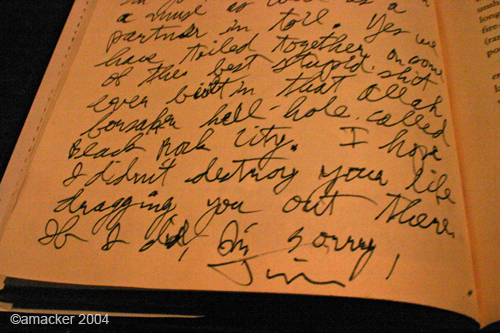 a muse as well as a
partner in toil. Yes we
have toiled together on some
of the best stupid shit
ever built in that Allah
forsaken hell-hole called
Black Rock City. I hope
I didn't destroy your life
dragging you out there
If I did, I'm sorry,
Jim
©amacker 2004